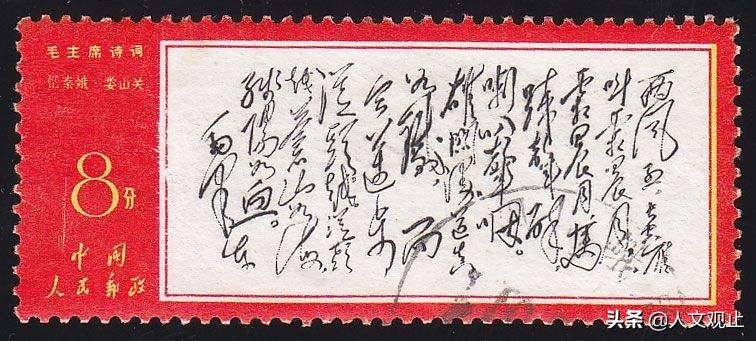 毛主席诗词
忆秦娥·娄山关
8分
中国
人民邮政
西风烈,长空雁
叫霜晨月。
霜晨月,马
蹄声碎,
喇叭声咽。
雄关漫道真
如铁,而
今迈步
从头越。从头
越,苍山如海,
残阳如血。
毛泽东
头条 @人文观止